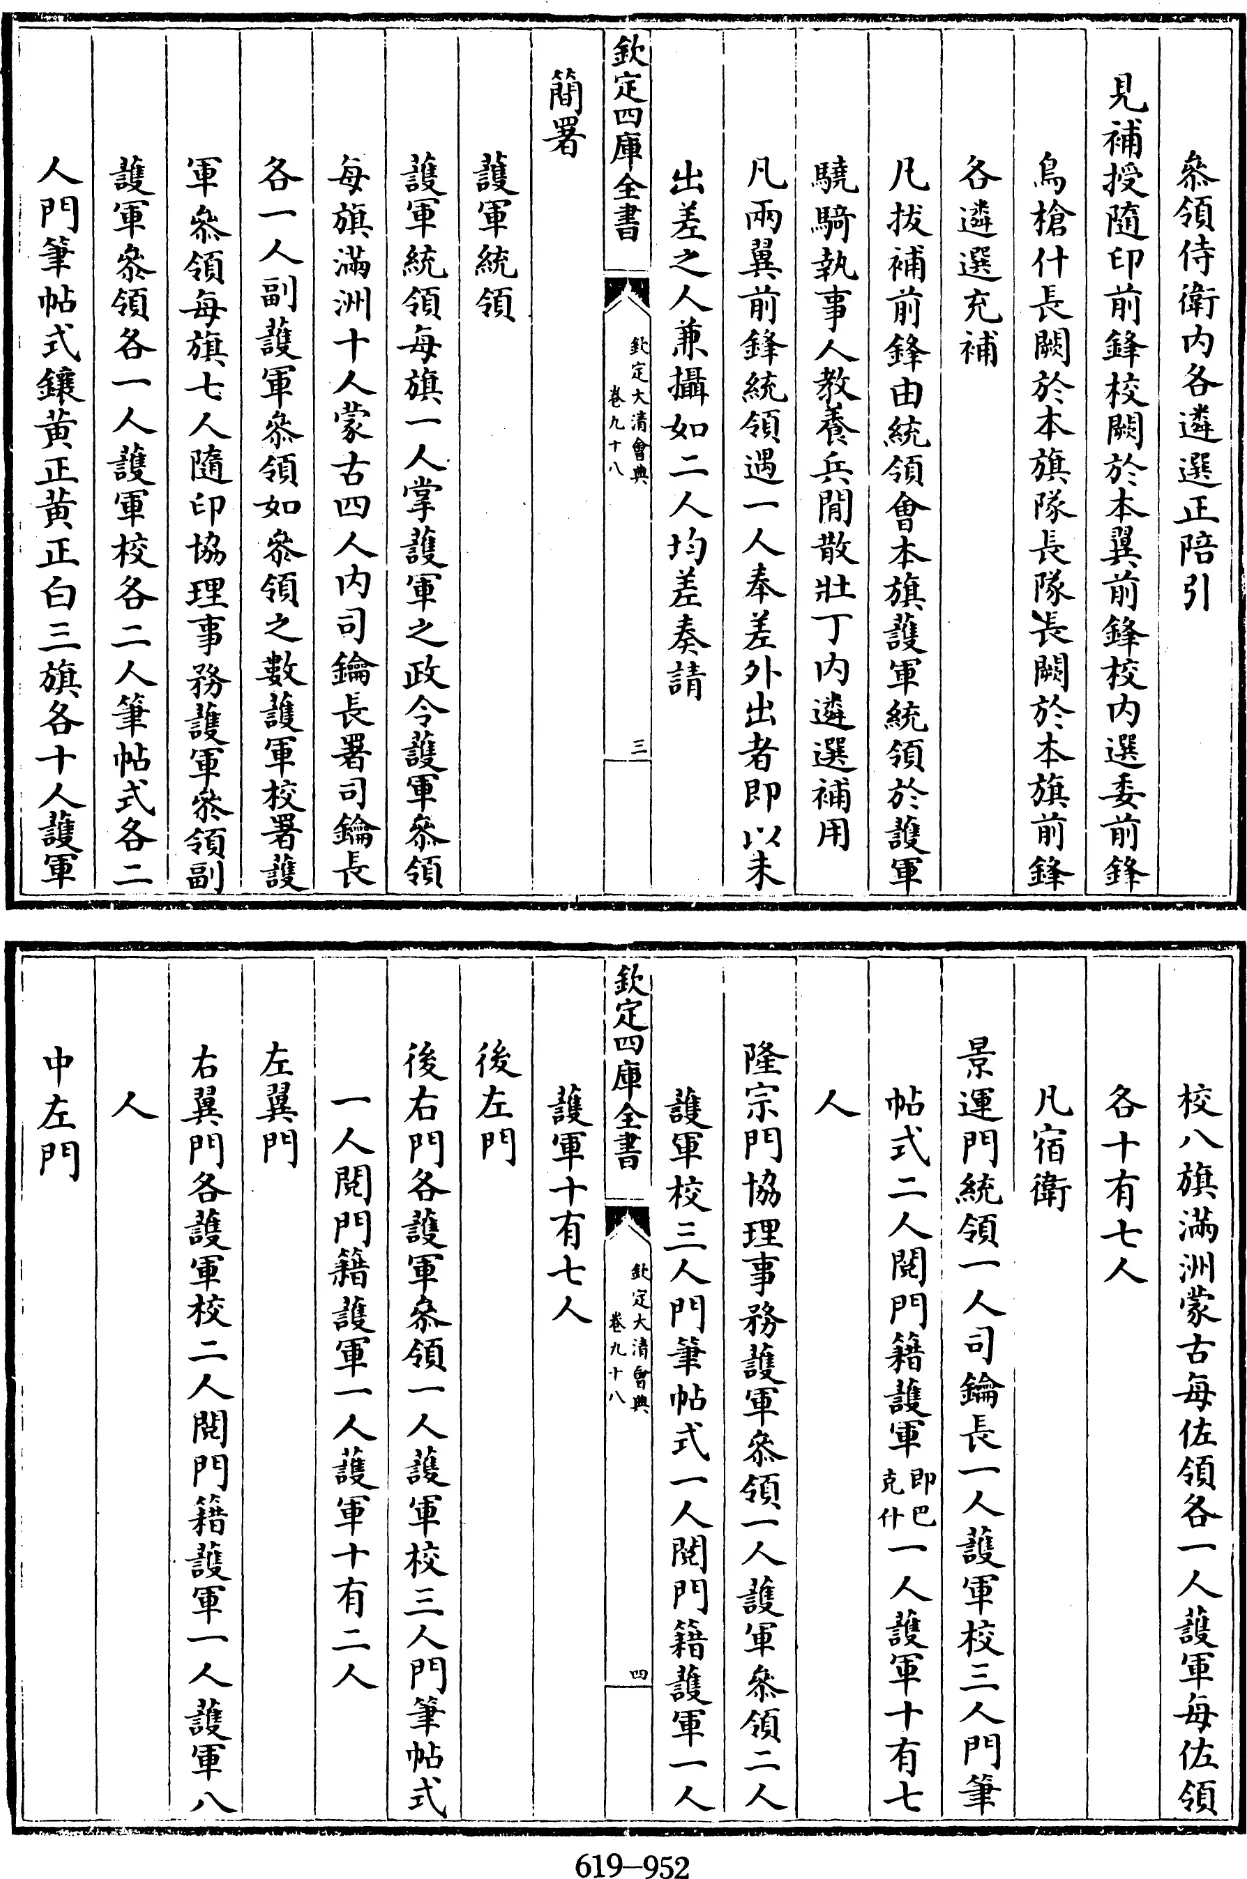 參領侍衛内各遴選正陪引
見補授隨印前鋒校闕於本翼前鋒校内選委前鋒
鳥槍什長闕於本旗隊長隊長闕於本旗前鋒
各遴選充補
凡拔補前鋒由統領會本旗護軍統領於護軍
驍騎執事人教養兵閒散壯丁内遴選補用
凡兩翼前鋒統領遇一人奉差外出者即以未
出差之人兼攝如二人均差奏請
欽定四庫全書
欽定大清會典
卷九十八
三
簡署
護軍統領
護軍統領每旗一人掌護軍之政令護軍參領
每旗滿洲十人蒙古四人内司鑰長署司鑰長
各一人副護軍參領如參領之數護軍校署護
軍參領每旗七人隨印協理事務護軍參領副
護軍參領各一人護軍校各二人筆帖式各二
人門筆帖式鑲黄正黄正白三旗各十人護軍
校八旗滿洲蒙古每佐領各一人護軍每佐領
各十有七人
凡宿衛
景運門統領一人司鑰長一人護軍校三人門筆
帖式二人閱門籍護軍即巴克什一人護軍十有七
人
隆宗門協理事務護軍參領一人護軍參領二人
護軍校三人門筆帖式一人閱門籍護軍一人
欽定四庫全書
欽定大清會典
卷九十八
四
護軍十有七人
後左門
後右門各護軍參領一人護軍校三人門筆帖式
一人閱門籍護軍一人護軍十有二人
左翼門
右翼門各護軍校二人閱門籍護軍一人護軍八
人
中左門
619-952